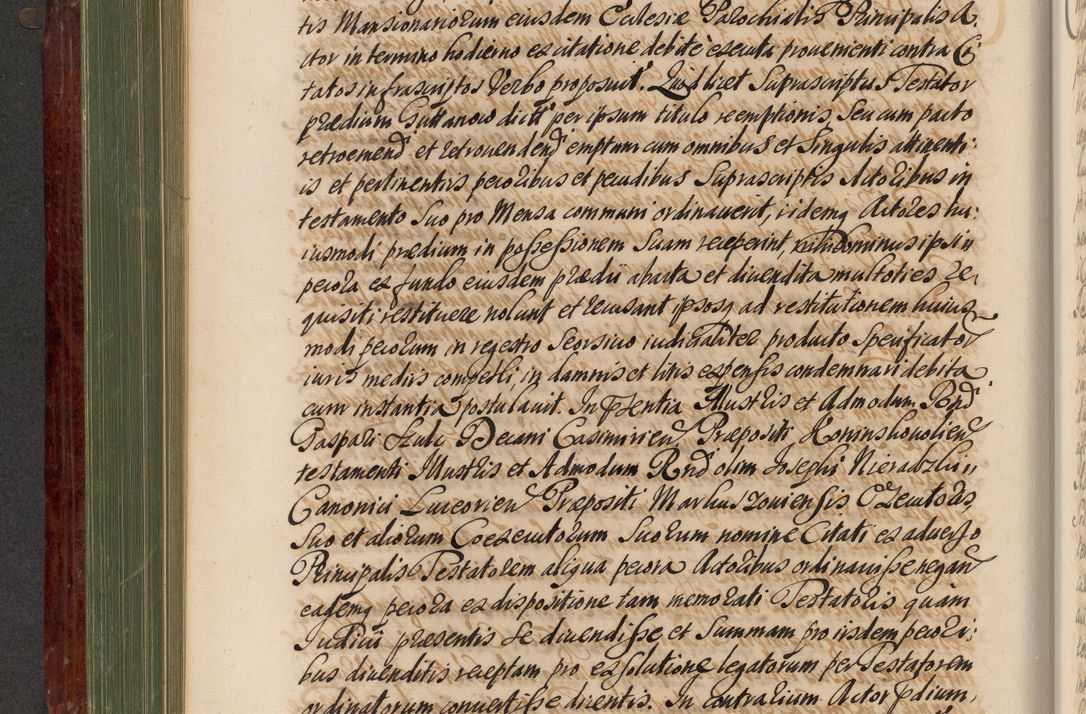 tis Mansionariorum eiusdem Ecclesiæ Parochialis Principalis A-
ctor in termino hodierno ex citatione debitè executa prouenienti contra Ci-
tatos infrascriptos Verbo proposuit. Quod licet Suprascriptus Testator
prædium Guttanow dictũ per ipsum titulo reemptionis, Seu cum pacto
retroemend et retrouendend emptum cum omnibus et Singulis attinenti-
is et pertinentiis pecoribus et pecudibus Suprascriptis Actoribus in
testamento Suo pro Mensa communi ordinauerit, iidemq Actores hu-
iusmodi prædium in possessionem Suam receperint, nihilominus ipsi
pecora ex fundo eiusdem prædii abacta et diuendita multoties re-
quisiti restituere nolunt et recusant ipsosq ad restitutionem huius-
modi pecorum in regestro Seorsiuo iudicialiter producto Specificator
iuris mediis compelli, in damnis et litis expensis condemnari debita
cum instantia postulauit. In Pñtia Illustris et Admodum Rnd
Gaspari Szulc Decani Casimirien Præpositi Koninskouolien
testamenti Illustris et Admodum Rnd olim Josephi Nierabzki
Canonici Luceorien Præpositi Markuszouiensis Executoris,
Suo et aliorum Coexecutorum Suorum nomine Citati ex aduerso
Principalis Testatorem aliqua pecora Actoribus ordinauisse negan
eademq pecora ex dispositione tam memorati Testatoris quàm
Judicii præsentis Se diuendisse et Summam pro iisdem pecori-
bus diuenditis receptam pro exsolutione legatorum per Testatorem
ordinatorum conuertisse dicentis. In contrarium Actor prædium,